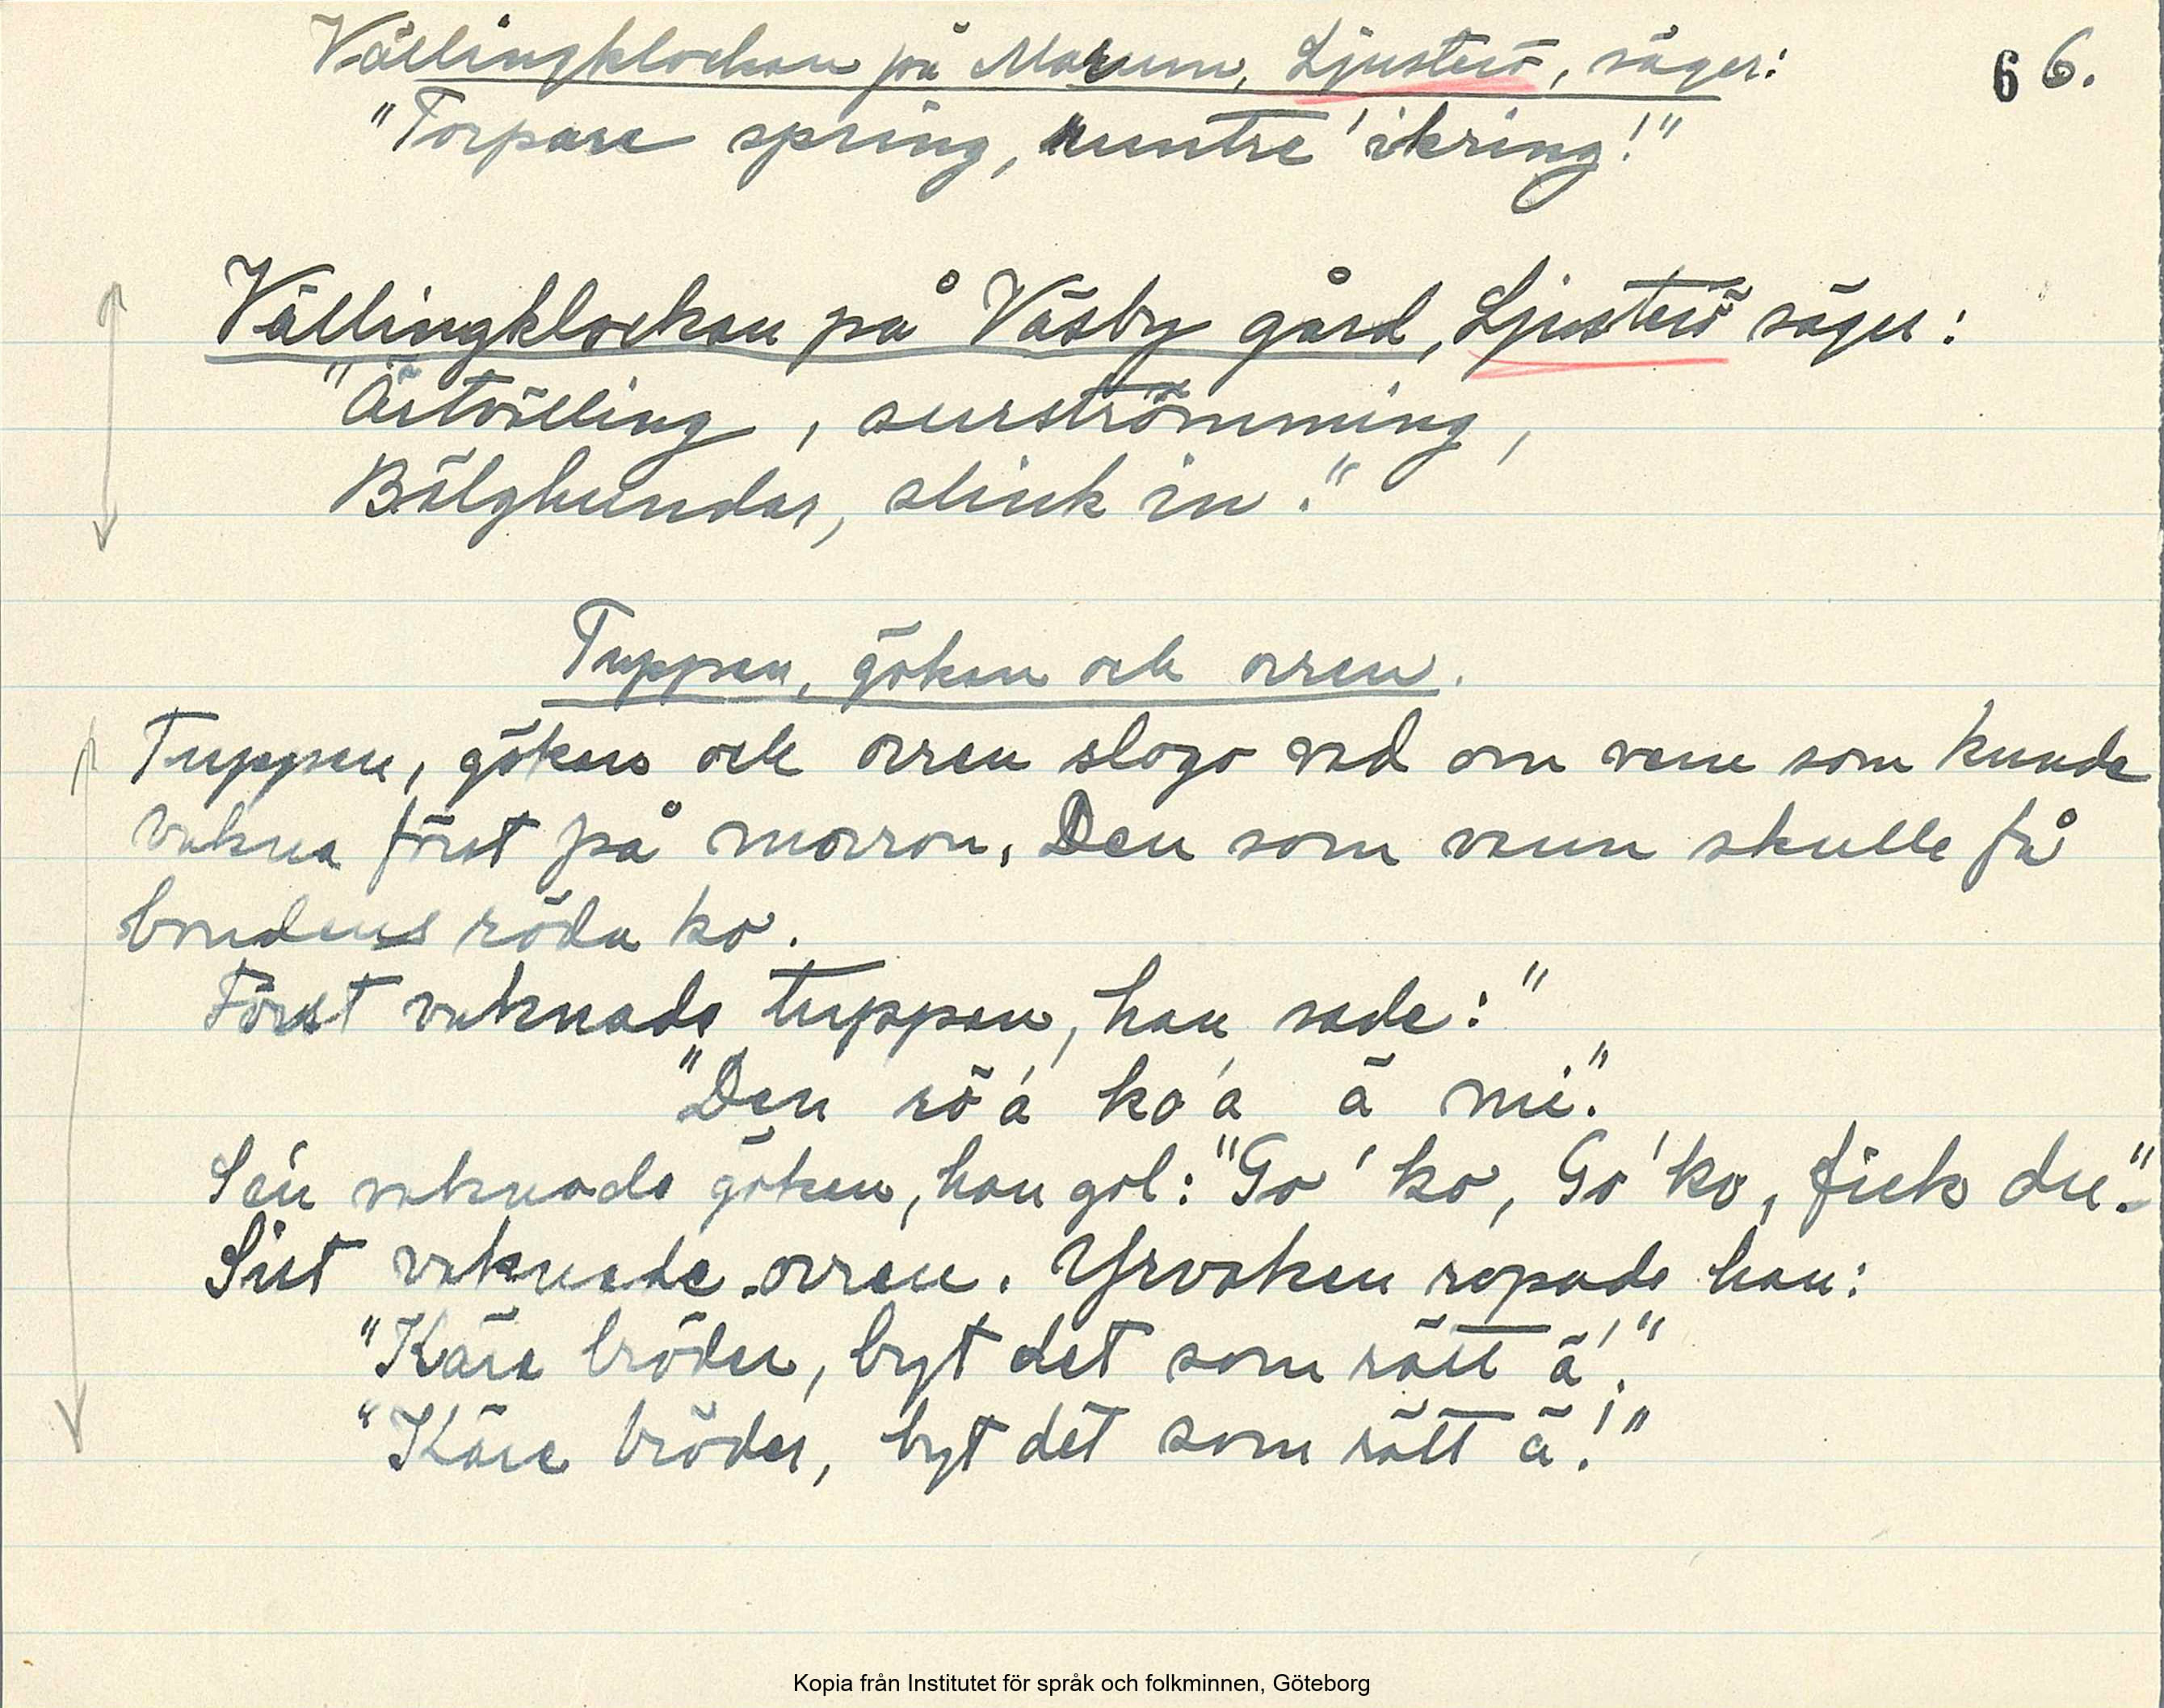 Vällingklockan på Marum, Ljusterö, säger: 66.
"Torpare spring, runtre' ikring!"
Vällingklockan på Väsby gård, Ljusterö säger:
"Ärtvälling, surströmming,
Bälghundar, slink in."
Tuppen, göken och orren.
Tuppen, göken och orren slogo vad om vem som kunde
vakna först på morron. Den som vann skulle få
bondens röda ko.
Först vaknade tuppen, han sade:"
"Den rö'a ko'a ä mi."
Se'n vaknade göken, han gol: "Go' ko, Go' ko, fick du."
Sist vaknade orren. Yrvaken ropade han:
"Käre bröder, byt det som rätt ä!"
"Käre bröder, byt det som rätt ä!"
Kopia från Institutet för språk och folkminnen, Göteborg